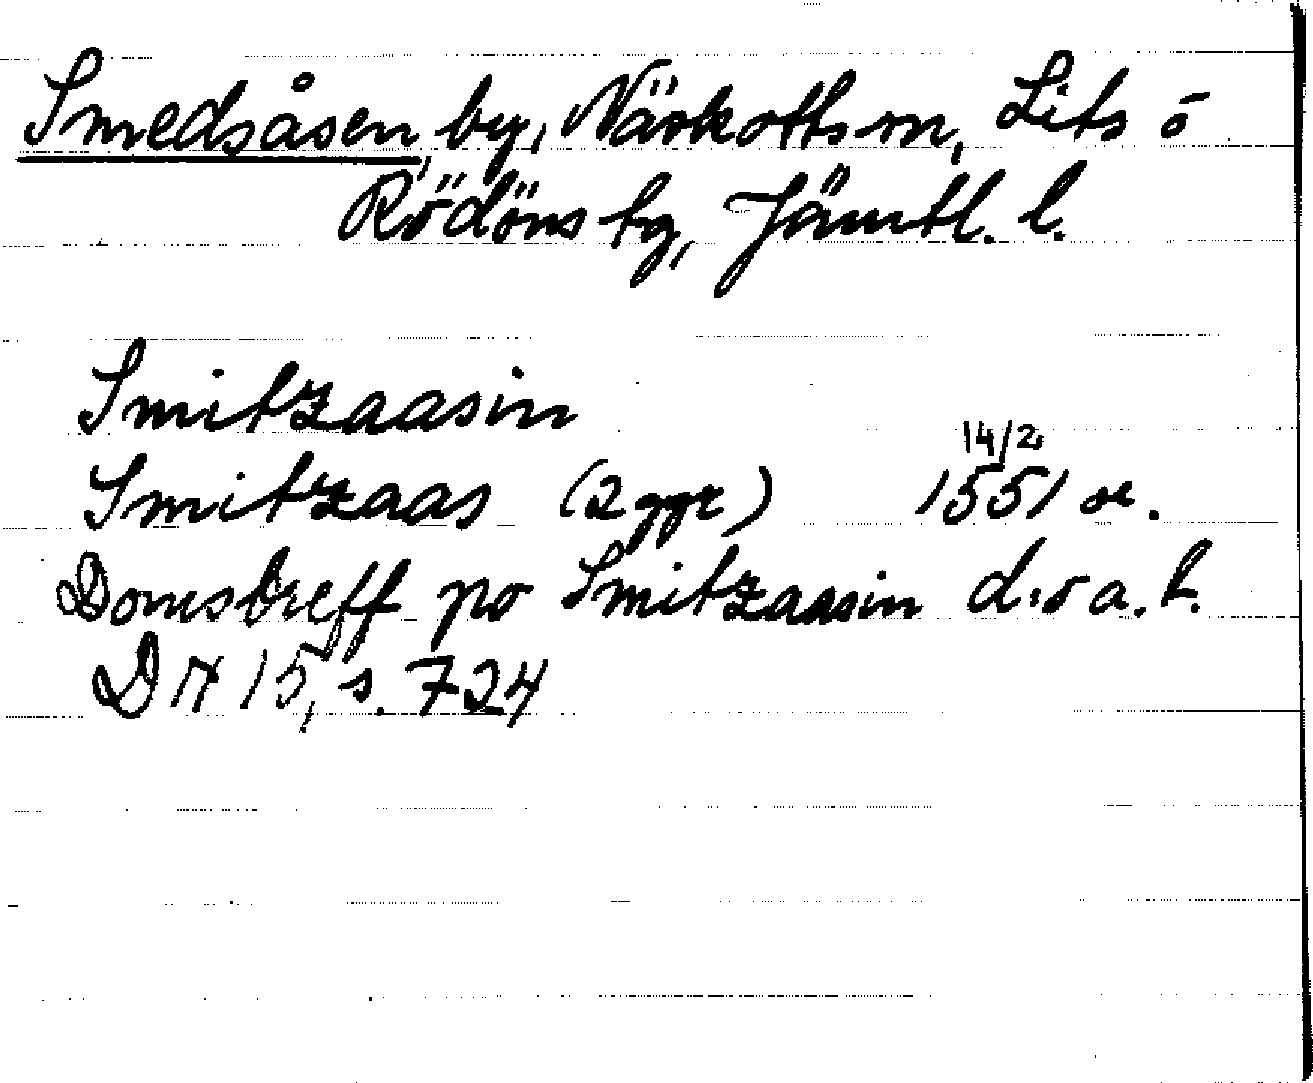 Smedsåsen, by, Näskotts sn, Lits o
Rödöns tg, Jämtl. l.
Smitzaasin
14/2
Smitzaas (2 ggr) 1551 or.
Domsbreff po Smitzaasin d.o a. h.
DN 15, s. 724